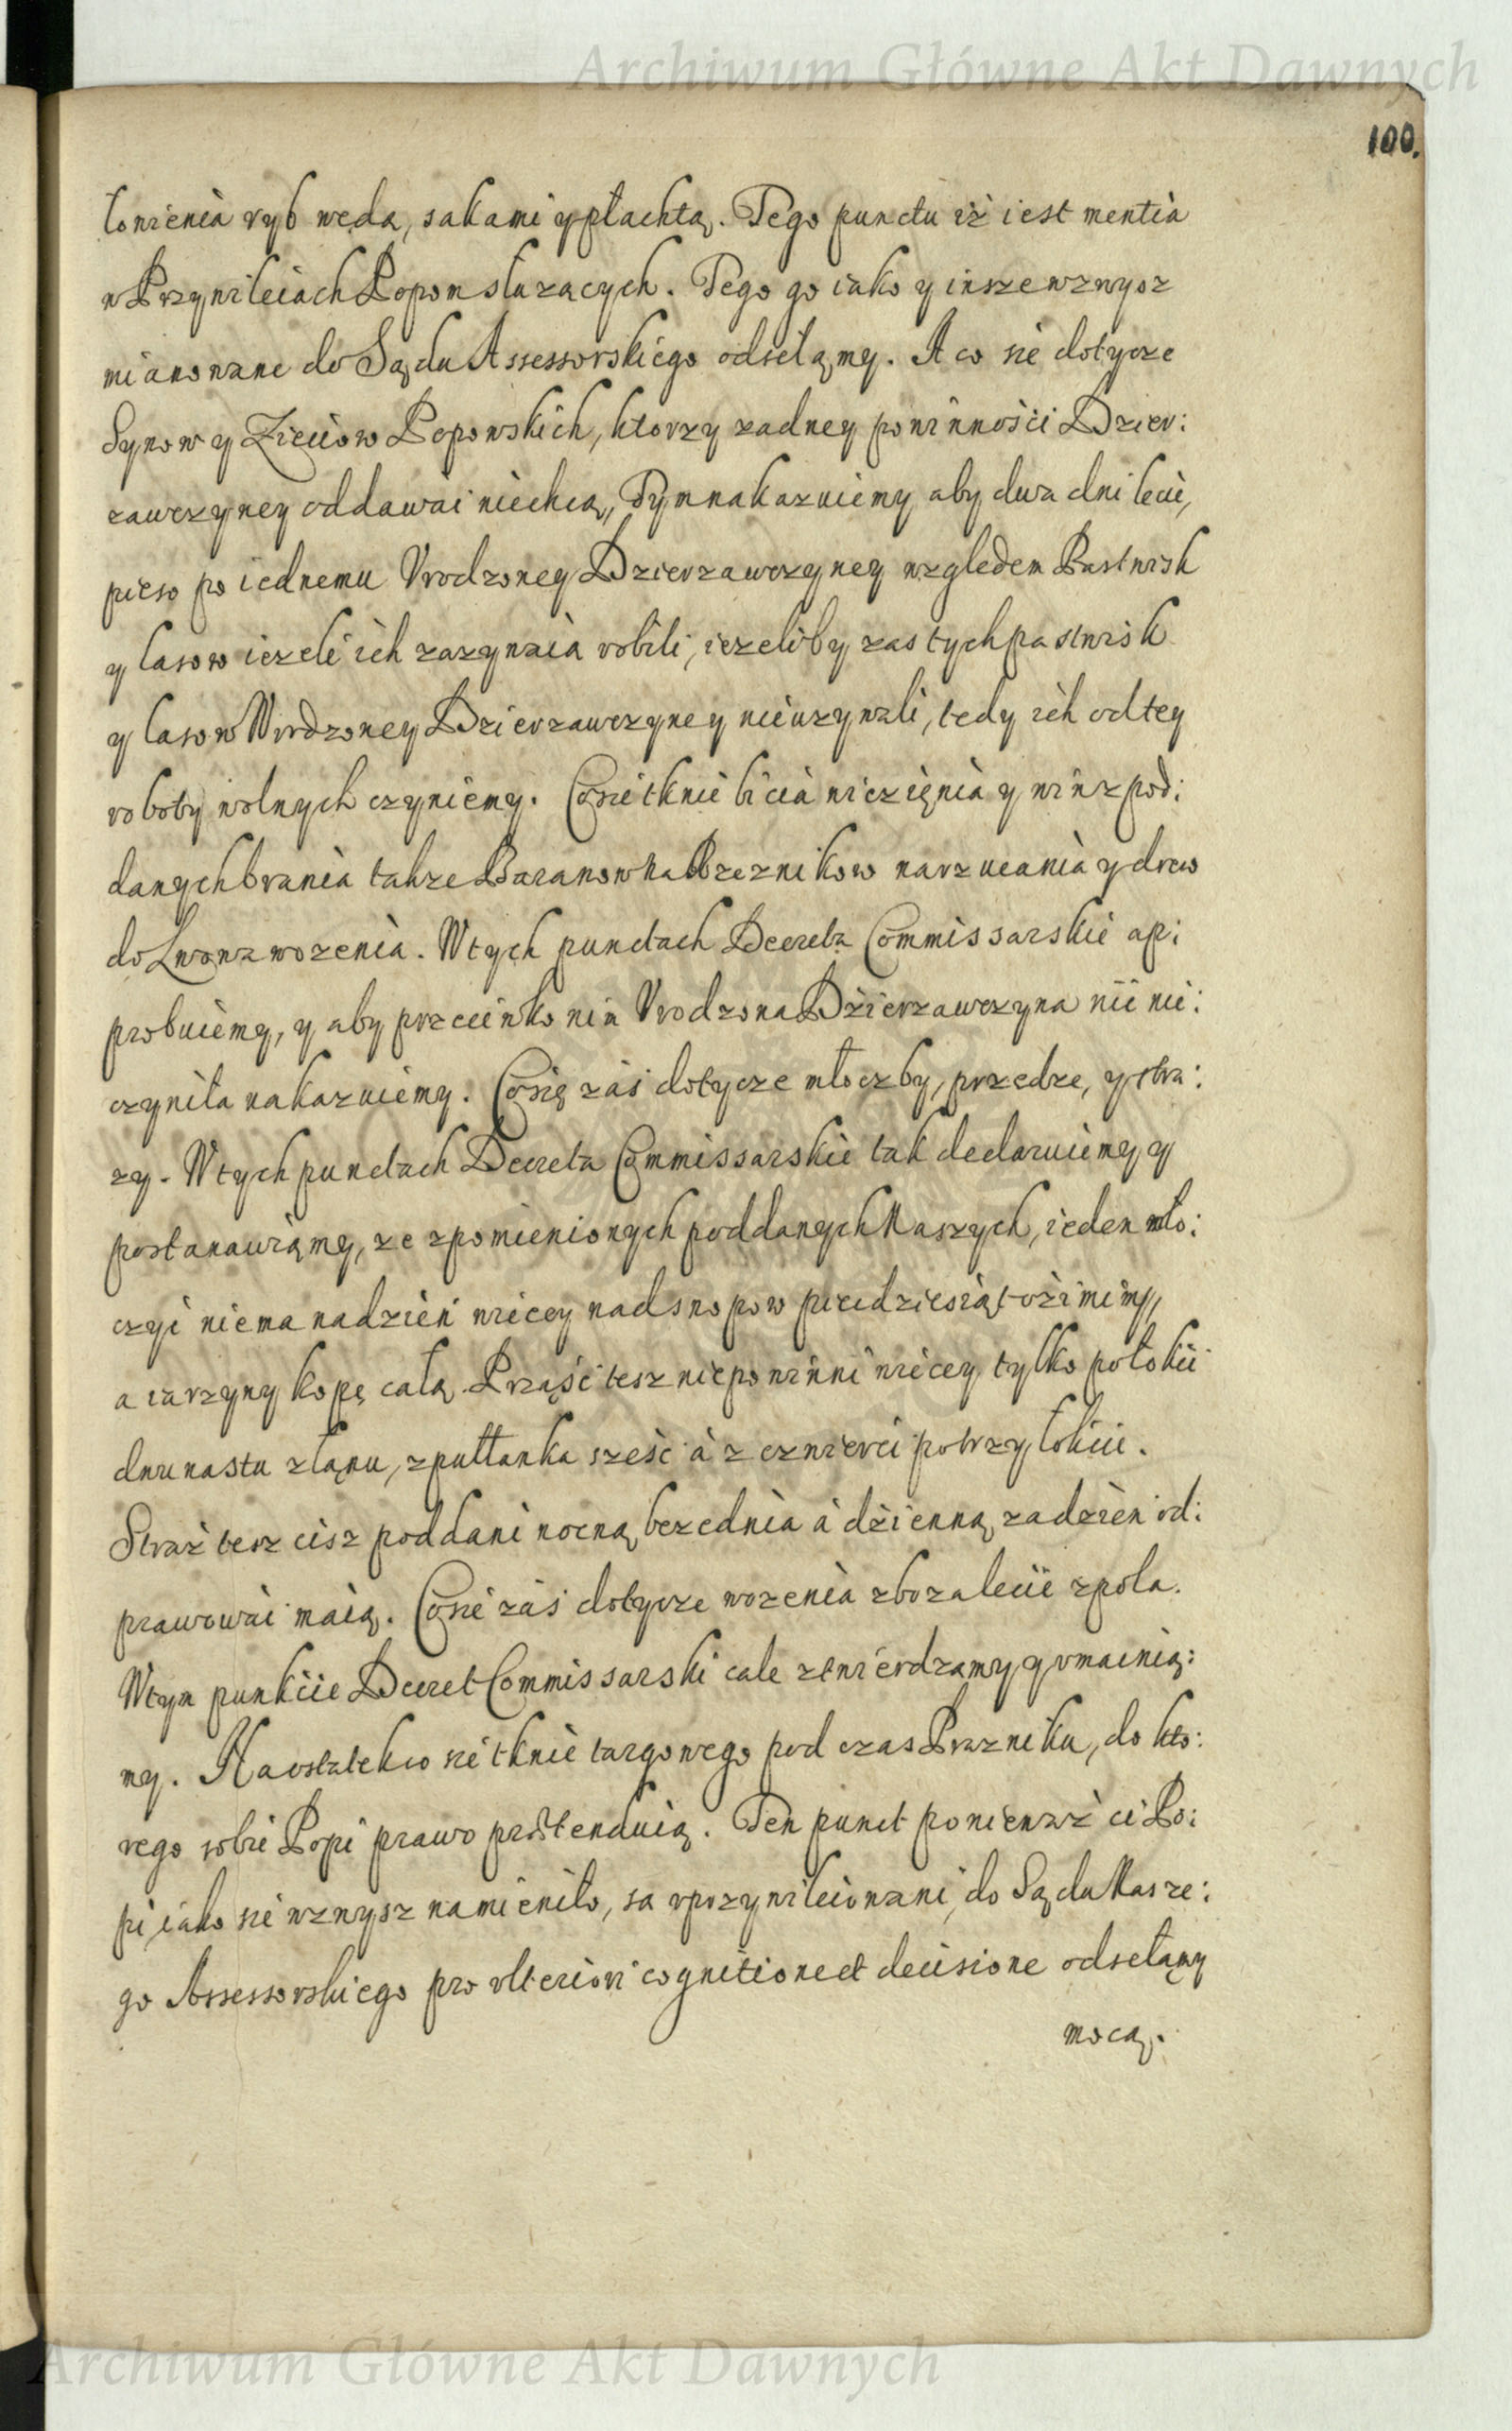 Archiwum Główne Akt Dawnych
100.
łowienia ryb wędą, sakami y płachtą. Tego punctu iż iest mentia
w Przywileiach Popom służących. Tego go iako y insze wzwysz
mianowane do Sądu Assessorskiego odsełamy. A co sie dotycze
Synow y Zięciow Popowskich, ktorzy zadney powinności Dzier:
zawczyney oddawać niechcą, Tym nakazuiemy aby dwa dni lecie,
pieso po iednemu Vrodzoney Dzierzawczyney względem Pastwisk
y lasow iezeli ich zazywaią robili, iezeliby zas tych pastwisk
y lasow Vrodzoney Dzierzawczyney nieuzywali, tedy ich od tey
roboty wolnych czyniemy. Co sie tknie bicia więzięnia y win z pod:
danych brania takze Baranow na Rzeznikow narzucania y drew
do Lwowa wozenia. W tych punctach Decreta Commissarskie ap:
probuiemy, y aby przeciwko nim Vrodzona Dzierzawczyna nic nie:
czyniła nakazuiemy. Co się zaś dotycze młoczby, przędze, y stra:
zy. W tych punctach Decreta Commissarskie tak declaruiemy y
postanawiamy, ze z pomienionych poddanych Naszych, ieden mło:
czyć niema nadzień wiecey nad snopow piedziesiąt oziminy,
a iarzyny kopę całą. Prząść tesz niepowinni wiecey tylko po łokci
dwunastu z łanu, z pułłanka sześć à z czwierci po trzy łokcie.
Straż tesz cisz poddani nocną beze dnia à dzienną za dzień od:
prawować maią. Co sie zaś dotycze wozenia zboza lecie z pola.
W tym punkcie Decret Commissarski cale ztwierdzamy y vmacnia:
my. Na ostatek co sie tknie targowego pod czas Prazniku, do kto:
rego sobie Popi prawo prætenduią. Ten punct poniewaź ci Po:
pi, iako sie wzwysz namieniło, sa vprzywileiowani, do Sądu Nasze:
go Assessorskiego pro vlteriori cognitione et decisione odsełamy
mocą.
Archiwum Główne Akt Dawnych